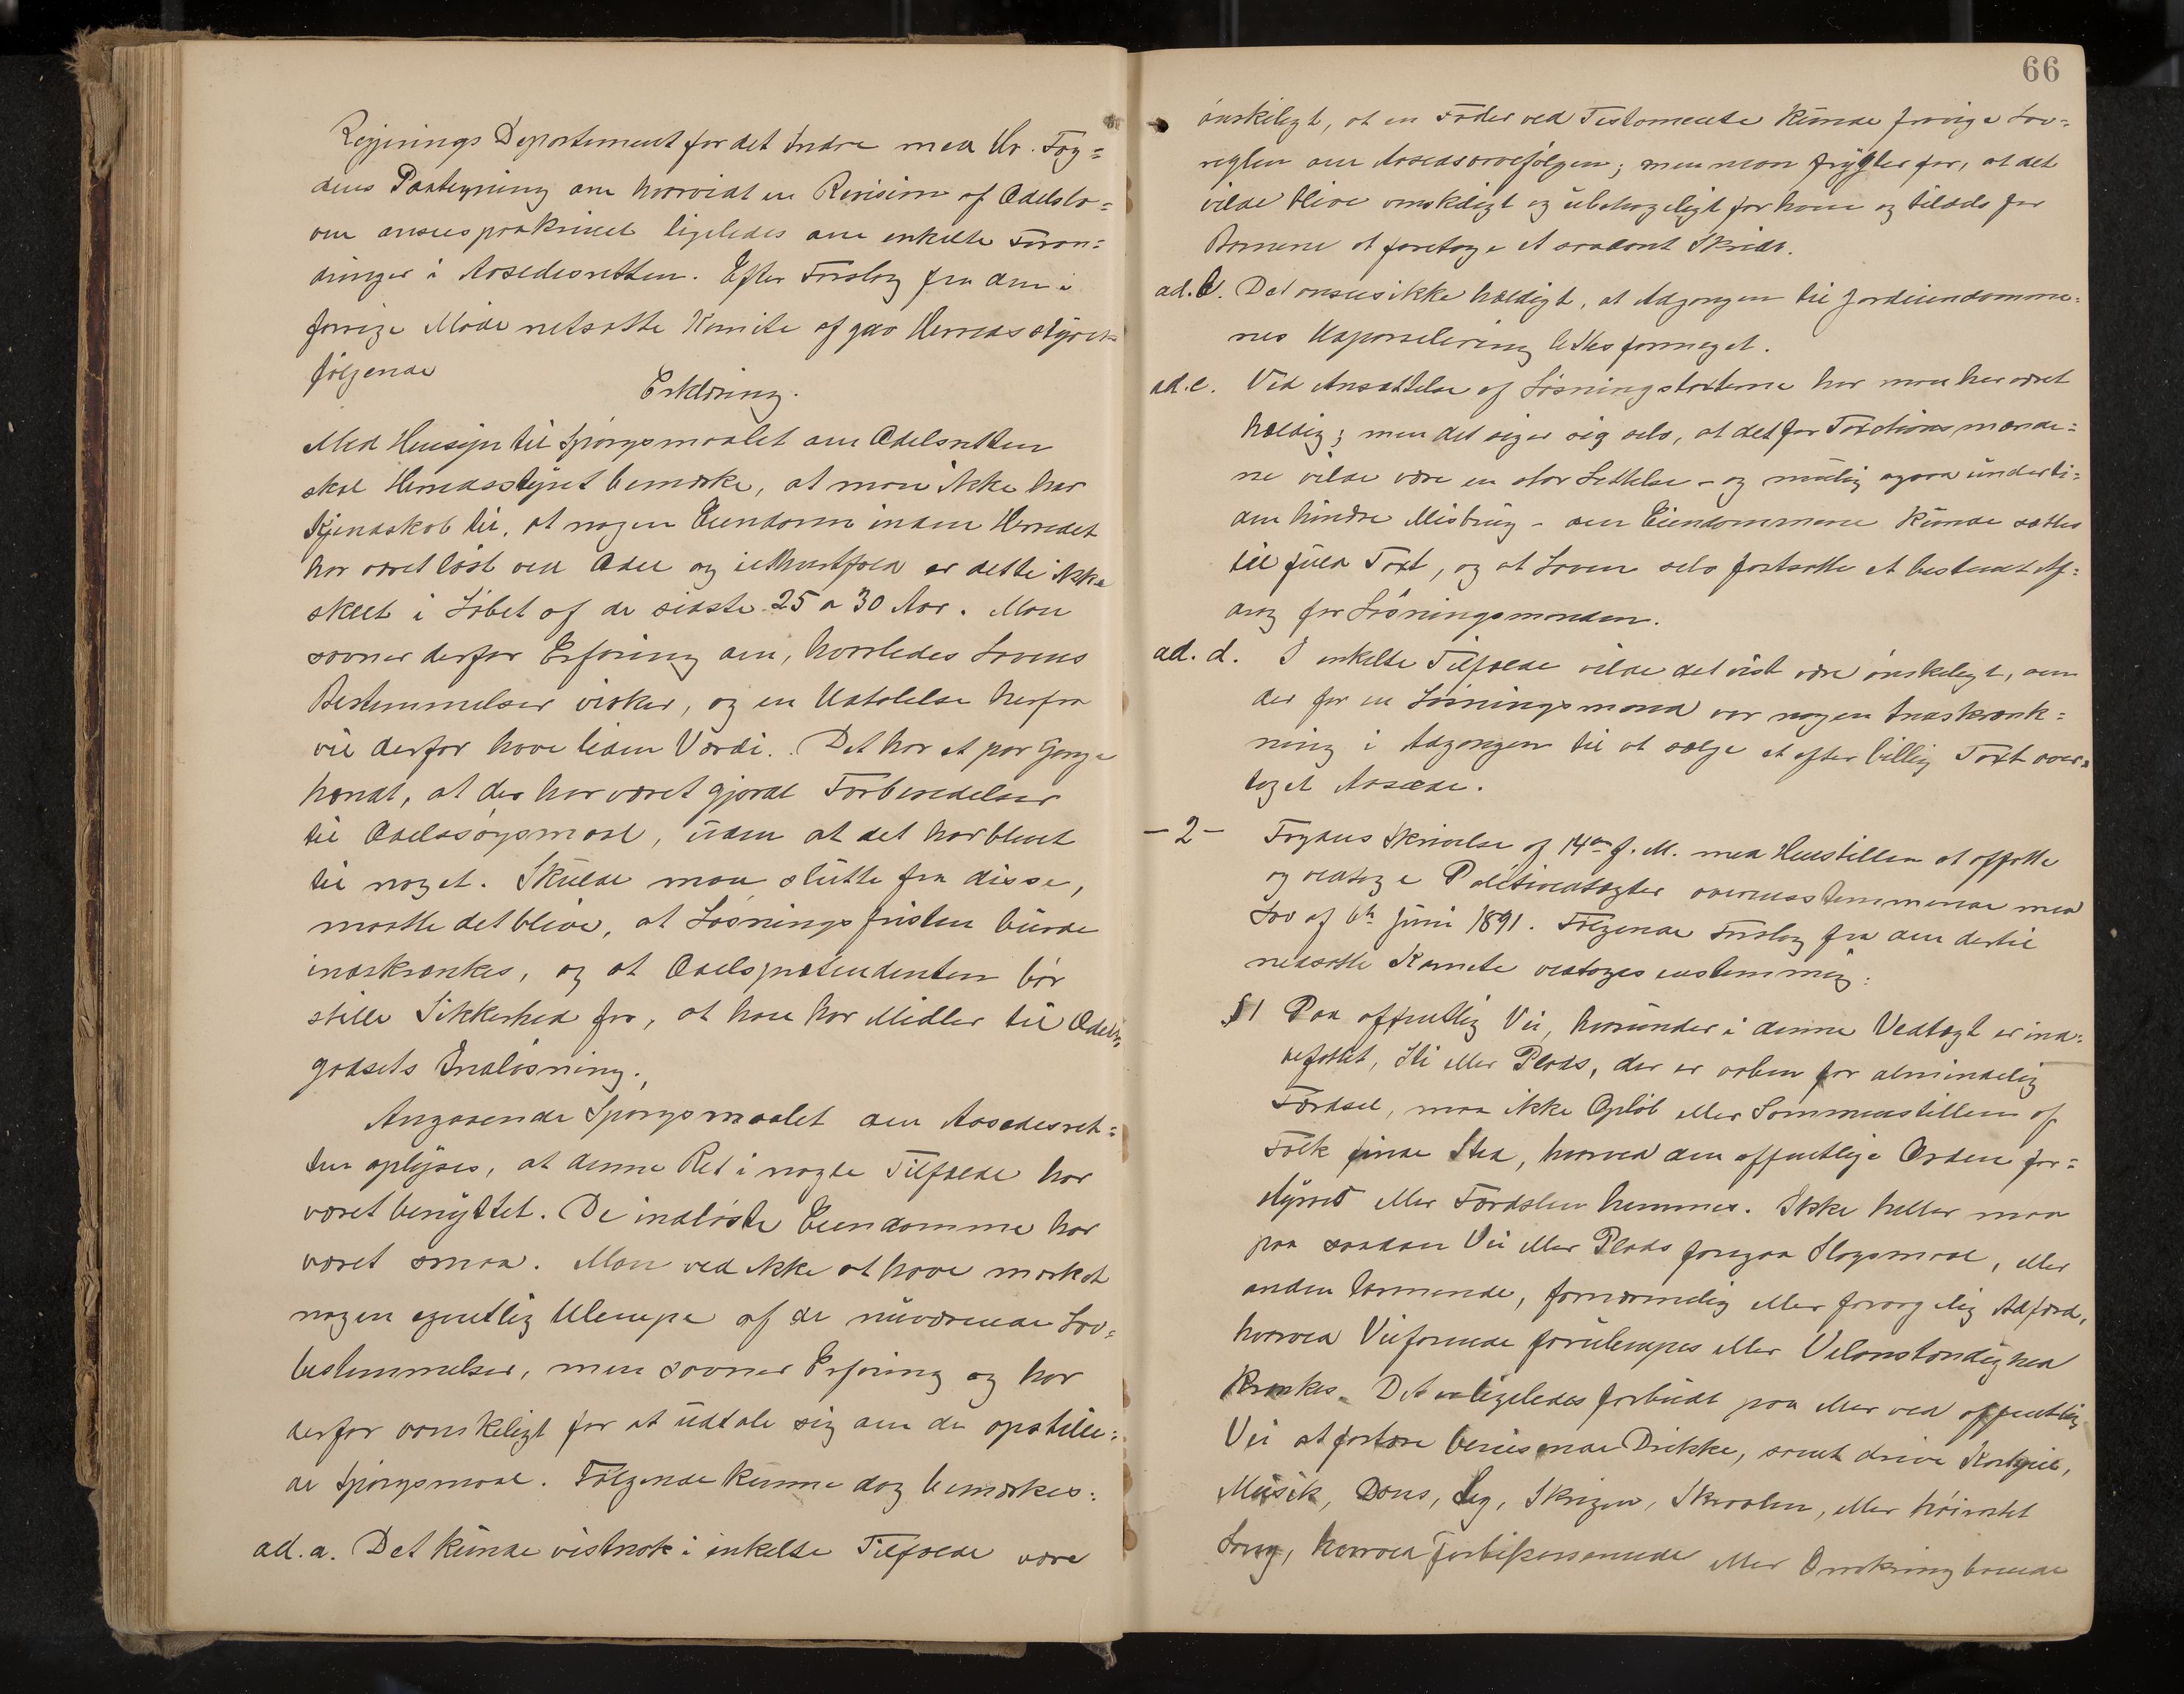 Regjerings Departement for det Indre med Hr. Fog=
dens Paategning om hvorvidt en Revision af Odelslo=
ven ansees paakrævet ligeledes om enkelte Foran=
dringer i Aasædesretten. Efter Forslag fra den i
forrige Møde nedsatte Komite afgav Herredsstyret
følgende
Erklæring.
Med Hensyn til Spørgsmaalet om Odelsretten
skal Herredsstyret bemærke, at man ikke har
Kjendskab til, at nogen Eiendom inden Herredet
har været løst ved Odel og ialfald er dette ikke
skeet i Løbet af de sidste 25 a 30 Aar. Man
savner derfor Erfaring om, hvorledes Lovens
Bestemmelser virker, og en Udtalelse herfra
vil derfor have liden Værdi. Det har et par Gange
hændt, at der har været gjordt Forberedelser
til Odelssøgsmaal, uden at det har blevet
til noget. Skulde man slutte fra disse,
maatte det blive, at Løsningsfristen burde
indskrænkes, og at Odelsprætendenten bør
stille Sikkerhed for, at han har Midler til Odels=
godsets Indløsning.
Angaaende Spørgsmaalet om Aasædesret=
ten oplyses, at denne Ret i nogle Tilfælde har
været benyttet. De indløste Eiendomme har
været smaa. Man ved ikke at have mærket
nogen egentlig Ulempe af de nuværende Lov=
bestemmelser, men savner Erfaring og har
derfor vanskeligt for at udtale sig om de opstille=
de Spørgsmaal. Følgende kunne dog bemærkes:
ad. a. Det kunde vistnok i enkelte Tilfælde være
66
ønskeligt, at en Fader ved Testamente kunde fravige Lov=
reglen om Aasædsarvefølgen; men man frygter for, at det
vilde blive vanskeligt og ubehageligt for ham og tildels for
Børnene at foretage et saadant Skridt.
ad. b. Det ansees ikke heldigt, at Adgangen til Jordeiendomme=
nes Udparselering lettes formeget.
ad. c. Ved Ansættelse af Løsningstaxterne har man her været
heldig; men det siger sig selv, at det for Taxtionsmænde=
ne vilde være en stor Lettelse – og mulig ogsaa underti=
den hindre Misbrug – om Eiendommene kunde sættes
til fuld Taxt, og at Loven selv fastsatte et bestemt Af=
drag for Løsningsmanden.
ad. d. I enkelte Tilfælde vilde det vist være ønskeligt, om
der for en Løsningsmand var nogen Indskrænk=
ning i Adgangen til at sælge et efter billig Taxt over=
taget Aasæde.
– 2 – Fogdens Skrivelse af 14de f. M. med Henstillen at opfatte
og vedtage Politivedtægter overensstemmende med
Lov af 6te Juni 1891. Følgende Forslag fra den dertil
nedsatte Komite vedtoges enstemmig:
§1 Paa offentlig Vei, hvorunder i denne Vedtægt er ind=
befattet, Sti eller Plads, der er aaben for almindelig
Færdsel, maa ikke Opløb eller Sammenstillen af
Folk finde Sted, hvorved den offentlige Orden for=
styrres eller Færdslen hemmes. Ikke heller maa
paa saadan Vei eller Plads foregaa Slagsmaal, eller
anden larmende, fornærmelig eller forargelig Adfærd,
hvorved Veifarende forulempes eller Velanstændighed
krænkes. Det er ligeledes forbudt paa eller ved offentlig
Vei at fortære berusende Drikke, samt drive Kortspil,
Musik, Dans, Leg, Skrigen, Skraalen, eller høirøstet
Sang, hvorved forbipasserende eller Omkringboende